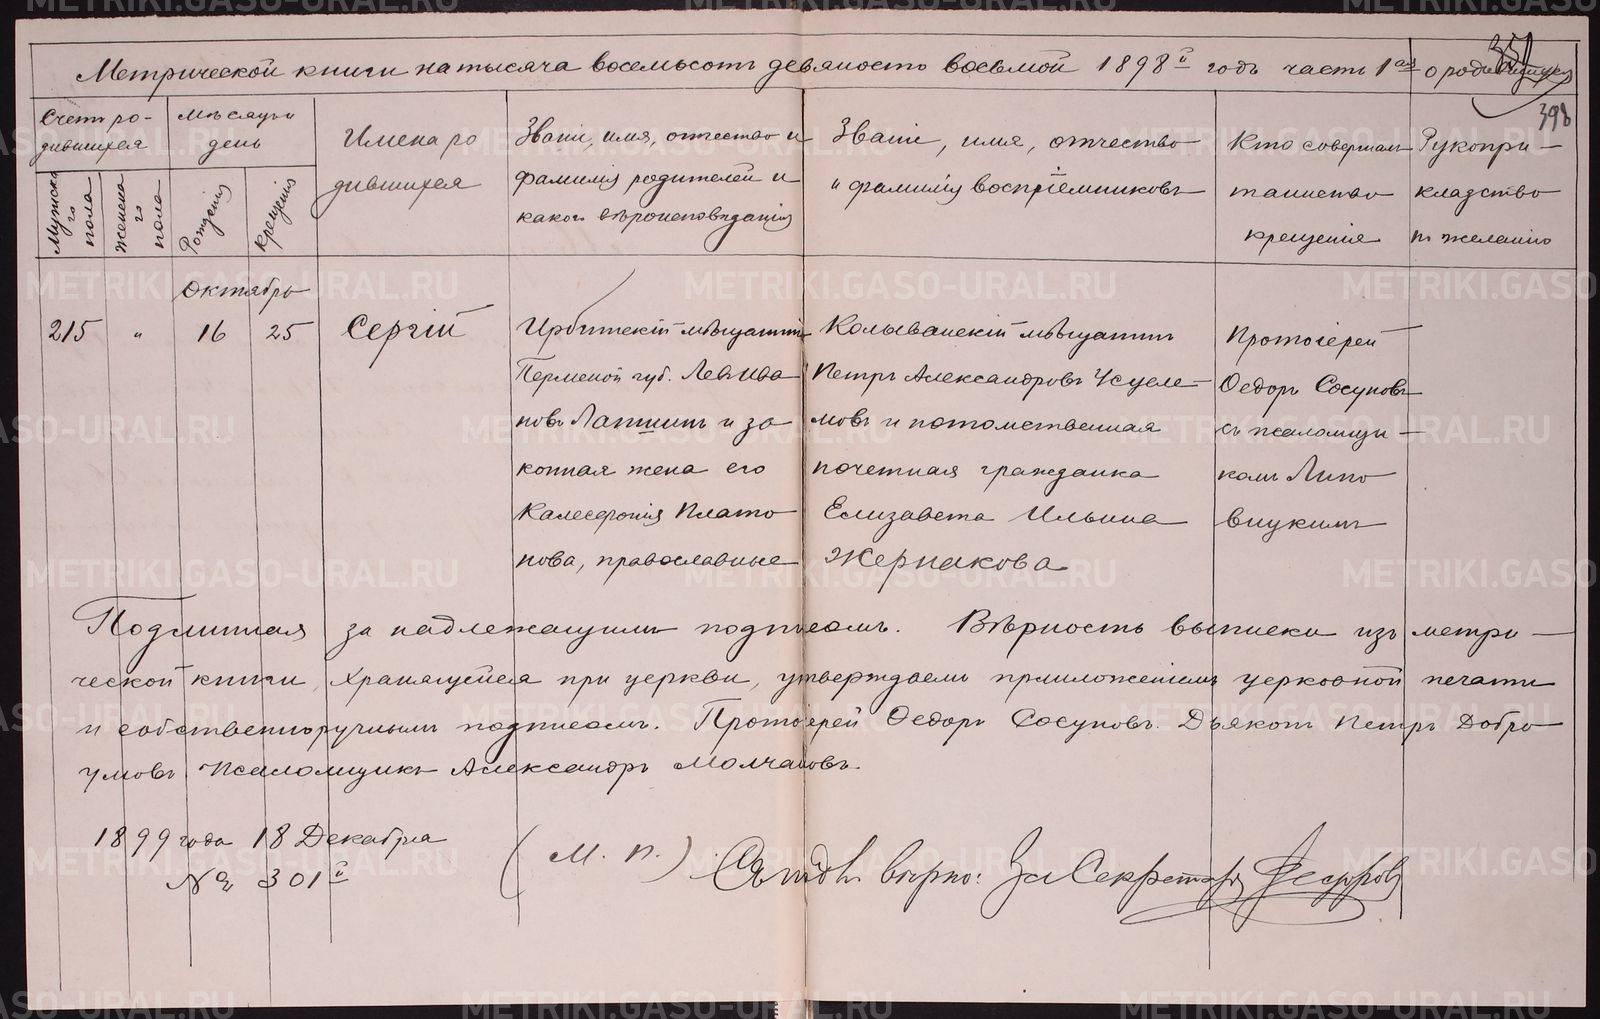 351
Метрической книги на тысяча восемьсотъ девяносто восьмой 1898й годъ часть 1ая о родившихся
398
Счетъ ро-
дившихся
Мужска
го
пола
Женска
го
пола
Мѣсяцъ и
день
Рожденiя
Крещенiя
Имена ро
дившихся
Званiе, имя, отчество и
фамилiя родителей и
какого вѣроисповѣданiя
Званiе, имя, отчество
и фамилiя воспрiемниковъ
Кто совершалъ
таинство
крещенiя
Рукопри-
кладство
по желанiю
Октябрь
215 " 16 25
Сергiй
Ирбитскiй мѣщанинъ
Пермской губ. Левъ Ива
новъ Лапшинъ и за
конная жена его
Калесфронiя Плато
нова, православные
Колыванскiй мѣщанинъ
Петръ Александровъ Усцеле-
мовъ и потомственная
почетная гражданка
Елизавета Ильина
Жернакова
Протоiерей
Ѳедоръ Сосуновъ
съ псаломщи-
комъ Липо
вицкимъ
Подлинная за надлежащимъ подписомъ. Вѣрность выписки изъ метри-
ческой книги, хранящейся при церкви, утверждаемъ приложенiемъ церковной печати
и собственноручнымъ подписомъ. Протоiерей Ѳедоръ Сосуновъ. Дьяконъ Петръ Добро
умовъ Псаломщикъ Александръ Молчановъ.
1899 года 18 Декабря
№ 301й
(М. П.)
вѣрно: За Секретаря Ѳедоров
METRIKI.GASO-URAL.RU